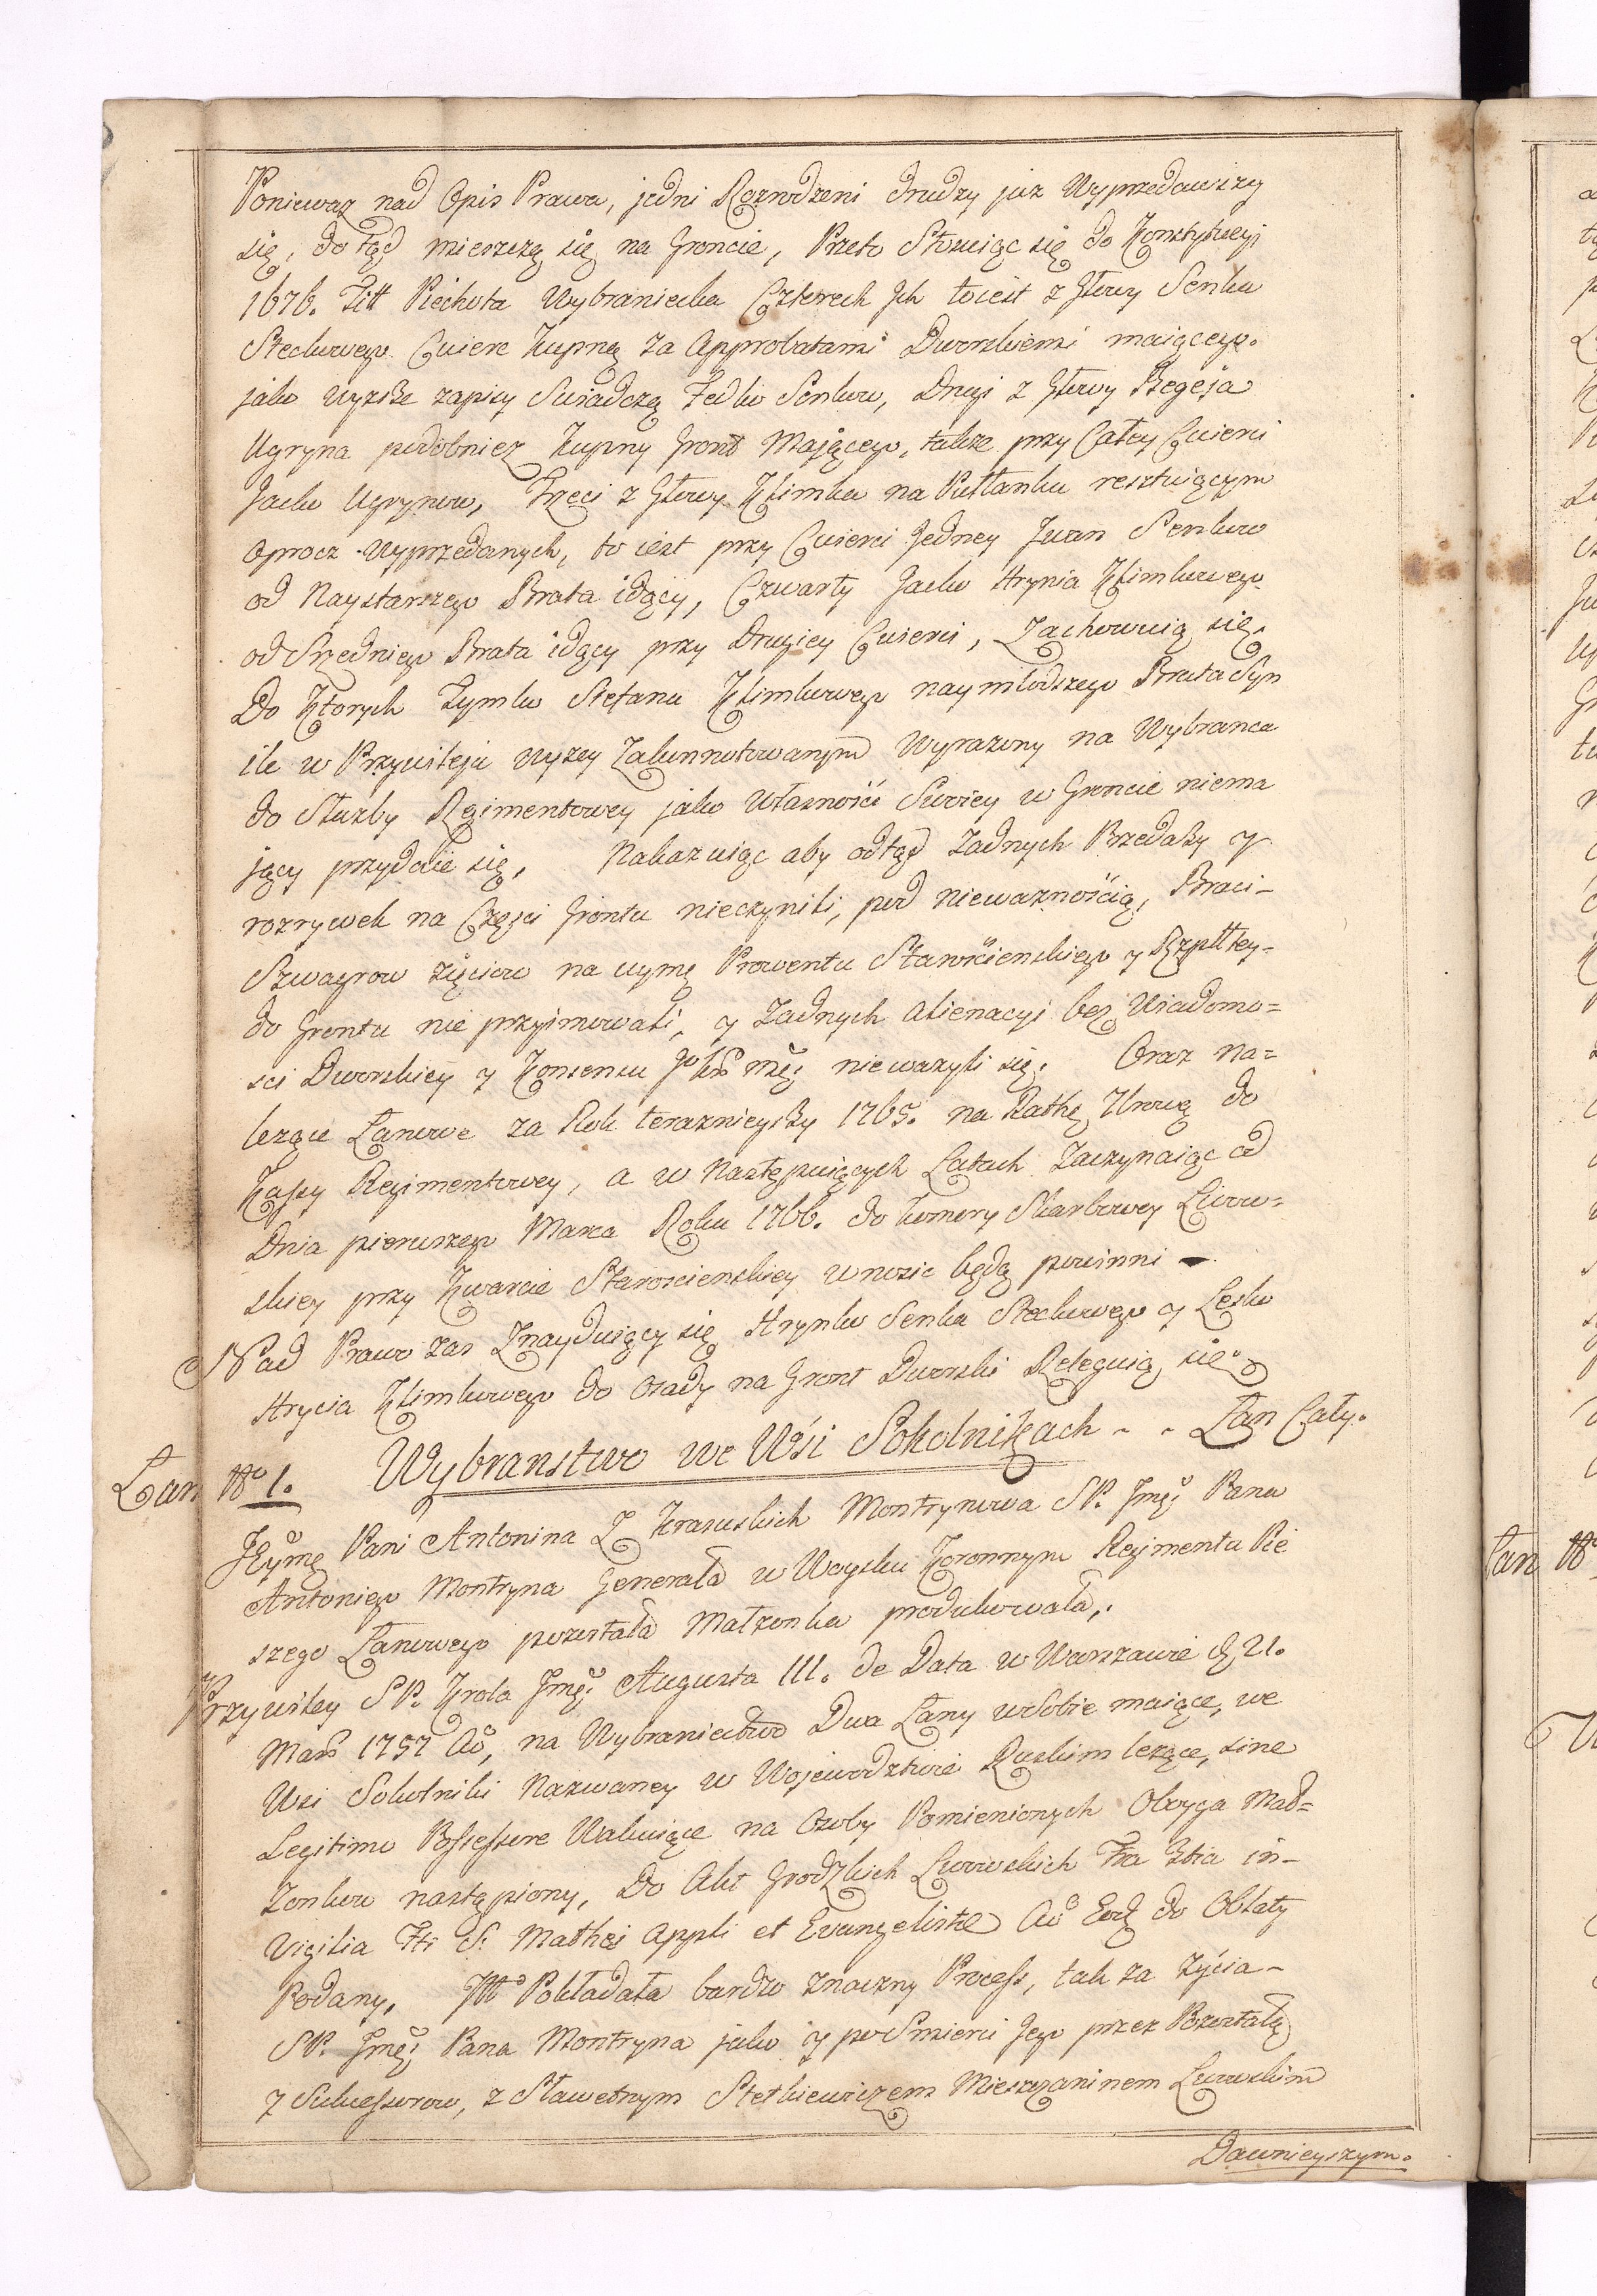 Poniewaz nad Opis Prawa, jedni Rozrodzeni drudzy juz Wyprzedawszy
się, do tąd mieszczą się na Groncie, Przeto Stosuiąc się do Konstytucyi
1676. Titt Piechota Wybraniecka Czterech Jch toiest z Głowy Senka
Steckowego Cwierc Kupną za Approbatami Dworskiemi maiącego.
jako wyższe zapisy Swiadczą Fedko Senkow, Drugi z Głowy Begeja
Ugryna podobniez Kupny Gront Mającego, takze przy Całey Cwierci
Jacko Ugrynow, Trzeci z Głowy Klimka na Pułłanku resztuiącym
oprocz Wyprzedanych, to iest przy Cwierci Jedney Jwan Senkow
od Naystarszego Brata idący, Czwarty Jacko Hrynia Klimkowego
od Sredniego Brata idący przy Drugiey Cwierci, Zachowuią się.
Do Ktorych Tymko Stefana Klimkowego naymłodszego Brata Syn
ile w Przywileju wyzey Zakonnotowanym Wyrazony na Wybranca
do Służby Regimentowey jako Własności Swoiey w Groncie niema
jący przydaie się, Nakazuiąc aby odtąd Zadnych Przedaży y
rozrywek na Części Grontu nieczynili, pod nieważnością, Braci-
Szwagrow Zięciow na uymę Prowentu Starościenskiego y Rzplltey-
do Grontu nie przyimowali, y Zadnych Alienacyi bez Wiadomo=
sci Dworskiey y Konsensu JoKr mći niewazyli się. Oraz na=
lezące Łanowe za Rok terazniejszy 1765. na Rathę Krową do
Kassy Regimentowey, a w Następuiących Latach Zaczynaiąc od
Dnia pierwszego Marca Roku 1766. do komory Skarbowey Lwow=
skiey przy Kwarcie Starościenskiey wnosic będą powinni -
Nad Prawo zas Znayduiący się Hrynko Senka Steckowego y Lesko
Hrycia Klimkowego do Osady na Gront Dworski Releguią się.
Łan No 1. Wybranstwo we Wśi Sokolnikach - - Łan Cały.
JEymć Pani Antonina Z Krasuskich Montrynowa SP. Jmći Pana
Antoniego Montryna Generała w Woysku Koronnym Rejmentu Pie
szego Łanowego pozostała Małzonka produkowała,.
Przywiley SP. Krola Jmći Augusta III. de Data w Warszawie d. 21.
Mars 1757 Ao, na Wybraniectwo Dwa Łany wSobie maiące, we
Wsi Sokolniki Nazwaney w Wojewodztwie Ruskim lezące, sine
Legitimo Possessore Wakuiące na Osoby Pomienionych Oboyga Mał=
żonkow nastąpiony, Do Akt Grodzkich Lwowskich Fra 3tia in-
Vigilia Fti S. Mathei Appli et Evangelistæ Ao Eod do Oblaty
Podany. Jttō Pokładała bardzo znaczny Process, tak za życia-
SP. Jmći Pana Montryna jako y po Smierci Jego przez Pozostałą
z Sukcessorow, z Sławetnym Stetkiewiczem Mieszczaninem Lwowskim
Dawnieyszym.